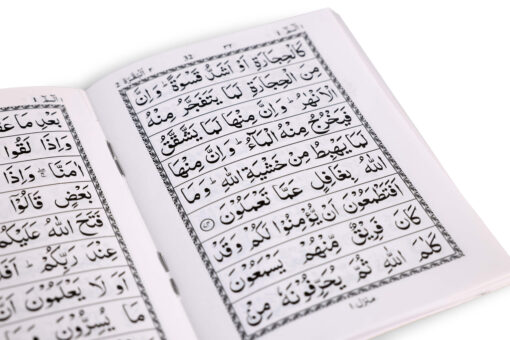 البقرة ٢ 32 ٣٢ الٓمّٓ ١
كَالْحِجَارَةِ اَوْ اَشَدُّ قَسْوَةً ؕ وَاِنَّ
مِنَ الْحِجَارَةِ لَمَا يَتَفَجَّرُ مِنْهُ
الْاَنْهٰرُ ؕ وَاِنَّ مِنْهَا لَمَا يَشَّقَّقُ
فَيَخْرُجُ مِنْهُ الْمَآءُ ؕ وَاِنَّ مِنْهَا
لَمَا يَهْبِطُ مِنْ خَشْيَةِ اللهِ ؕ وَمَا
اللهُ بِغَافِلٍ عَمَّا تَعْمَلُوْنَ
اَفَتَطْمَعُوْنَ اَنْ يُّؤْمِنُوْا لَكُمْ وَقَدْ
كَانَ فَرِيْقٌ مِّنْهُمْ يَسْمَعُوْنَ
كَلٰمَ اللهِ ثُمَّ يُحَرِّفُوْنَهٗ مِنْۢ
منزل ١
الٓمّٓ ١
بَعْدِ مَا
وَاِذَا لَقُوا
اٰمَنَّا ۖ وَاِذَا
بَعْضٍ قَالُوْٓا
فَتَحَ اللهُ عَلَيْكُمْ
عِنْدَ رَبِّكُمْ ؕ
اَوَلَا يَعْلَمُوْنَ
مَا يُسِرُّوْنَ